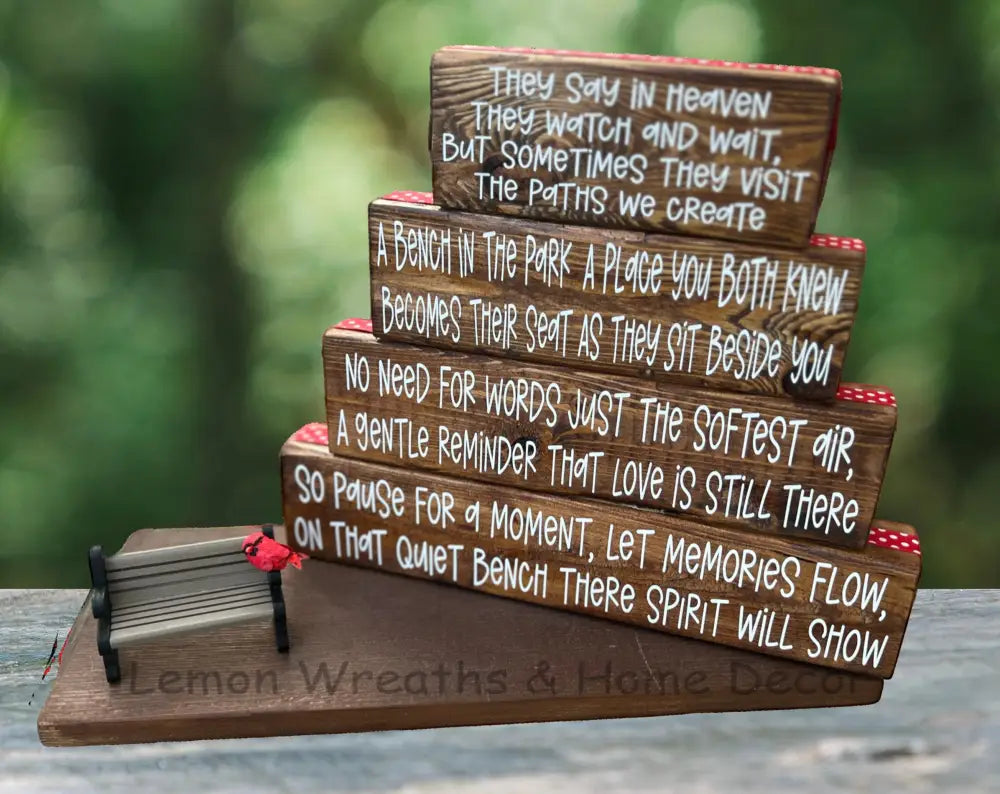 They say in Heaven
They watch and wait,
But sometimes they visit
The paths we create
A bench in the park a place you both knew
Becomes their seat as they sit beside you
No need for words just the softest air,
A gentle reminder that love is still there
So pause for a moment, let memories flow,
On that quiet bench there spirit will show
Lemon Wreaths & Home Decor